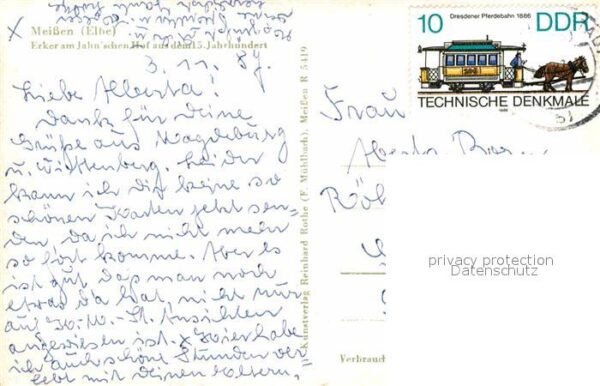 Meißen (Elbe)
Erker am Jahn'schen Hof aus dem 15. Jahrhundert
3. 11. 89.
Liebe Alberta!
Dank für Deine
Grüße aus Magdeburg
u. Wittenberg. Leider
kann ich Dir keine so
schönen Karten jetzt sen-
den, da ich nicht mehr
so fort komme. Aber es
ist gut, daß man noch
etwas da hat, nicht nur
auf K.-M.-St. Ansichten
angewiesen ist. x Hier habe
ich auch schöne Stunden ver
lebt mit Deinen Eltern.
Kunstverlag Reinhard Rothe (F. Mühlbach), Meißen R 5419
10 Dresdener Pferdebahn 1886 DDR
TECHNISCHE DENKMALE
1986
Frau
privacy protection
Datenschutz
Verbrauch